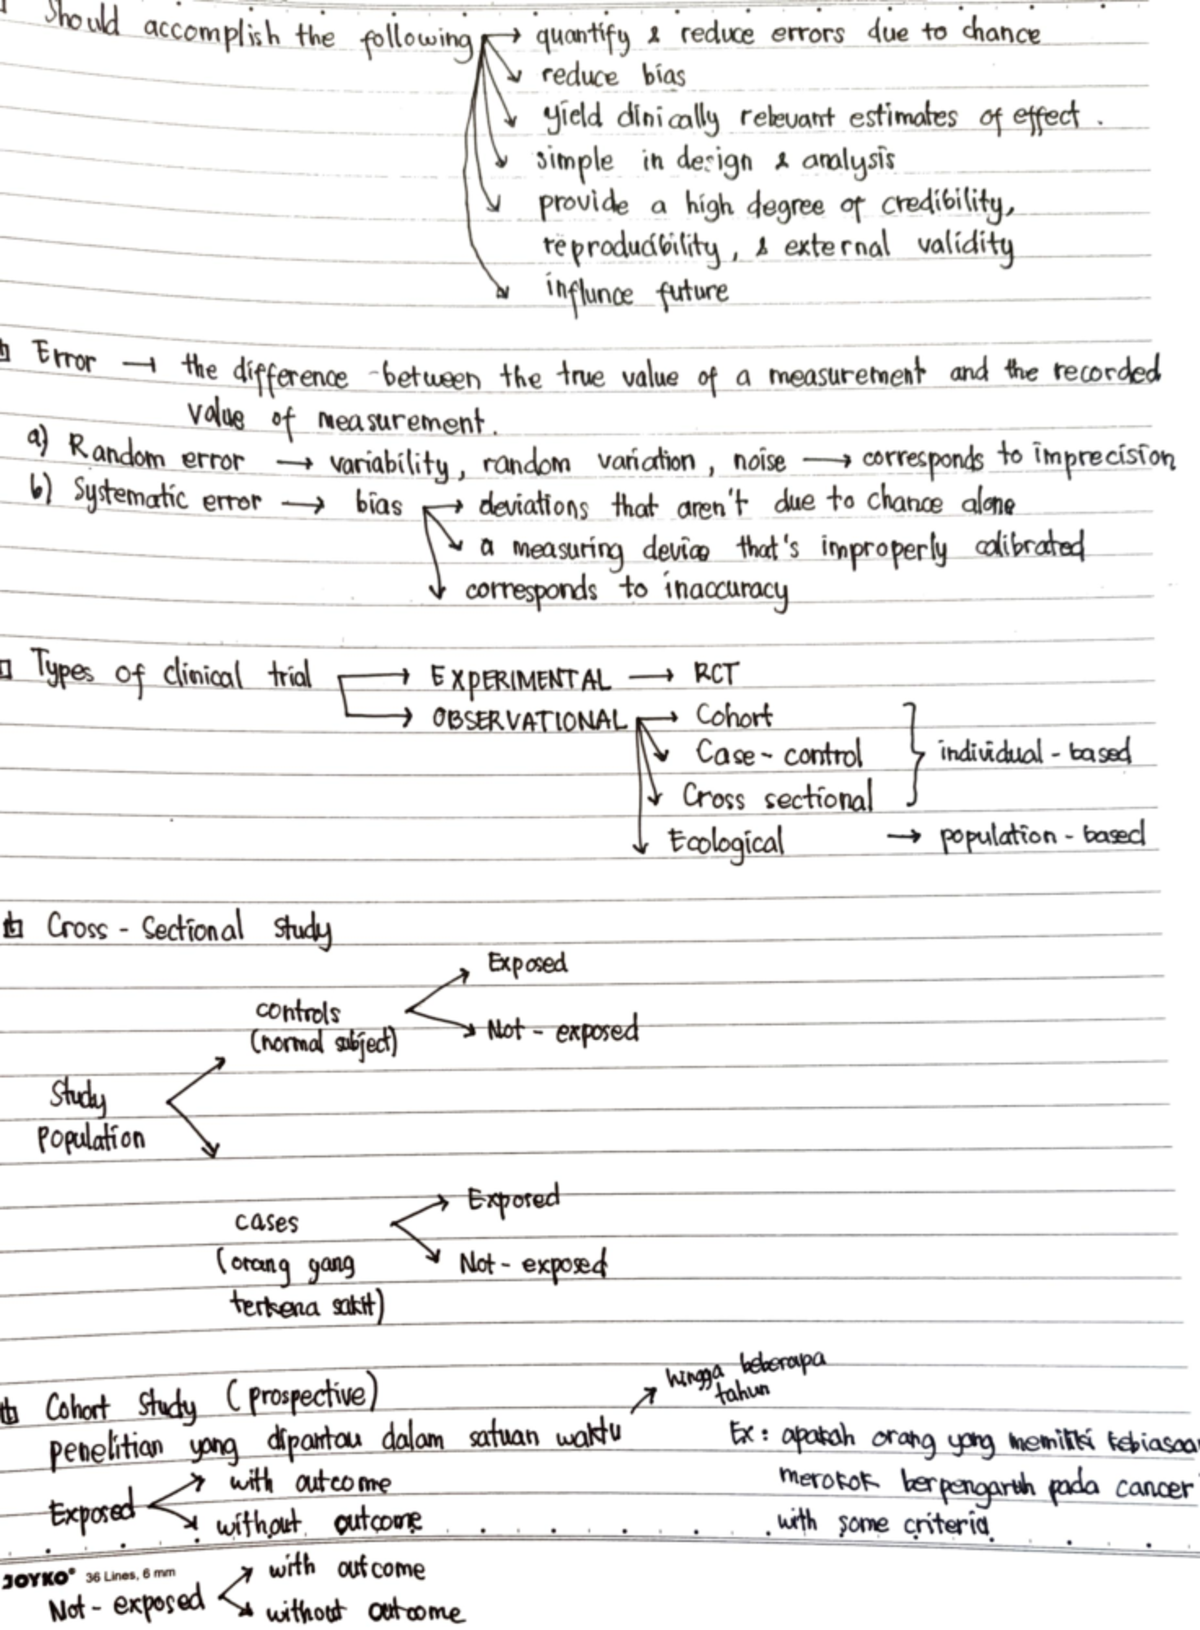 Should accomplish the following → quantify & reduce errors due to chance
reduce bias
yield clinically relevant estimates of effect.
simple in design & analysis
provide a high degree of credibility,
reproducibility, & external validity
influnce future
Error → the difference between the true value of a measurement and the recorded
value of measurement.
a) Random error → variability, random variation, noise → corresponds to imprecision
b) Systematic error → bias → deviations that aren't due to chance alone
a measuring device that's improperly calibrated
corresponds to inaccuracy
Types of clinical trial → EXPERIMENTAL → RCT
→ OBSERVATIONAL → Cohort
Case - control } individual - based
Cross sectional
Ecological → population - based
Cross - Sectional Study
Exposed
controls
(normal subject)
Not - exposed
Study
Population
Exposed
cases
(orang yang
Not - exposed
terkena sakit)
hingga beberapa
tahun
Cohort Study (prospective)
penelitian yang dipantau dalam satuan waktu
Ex : apakah orang yang memiliki kebiasaan
merokok berpengaruh pada cancer
with some criteria
Exposed
with outcome
without outcome
JOYKO® 36 Lines, 6 mm
Not - exposed
with outcome
without outcome